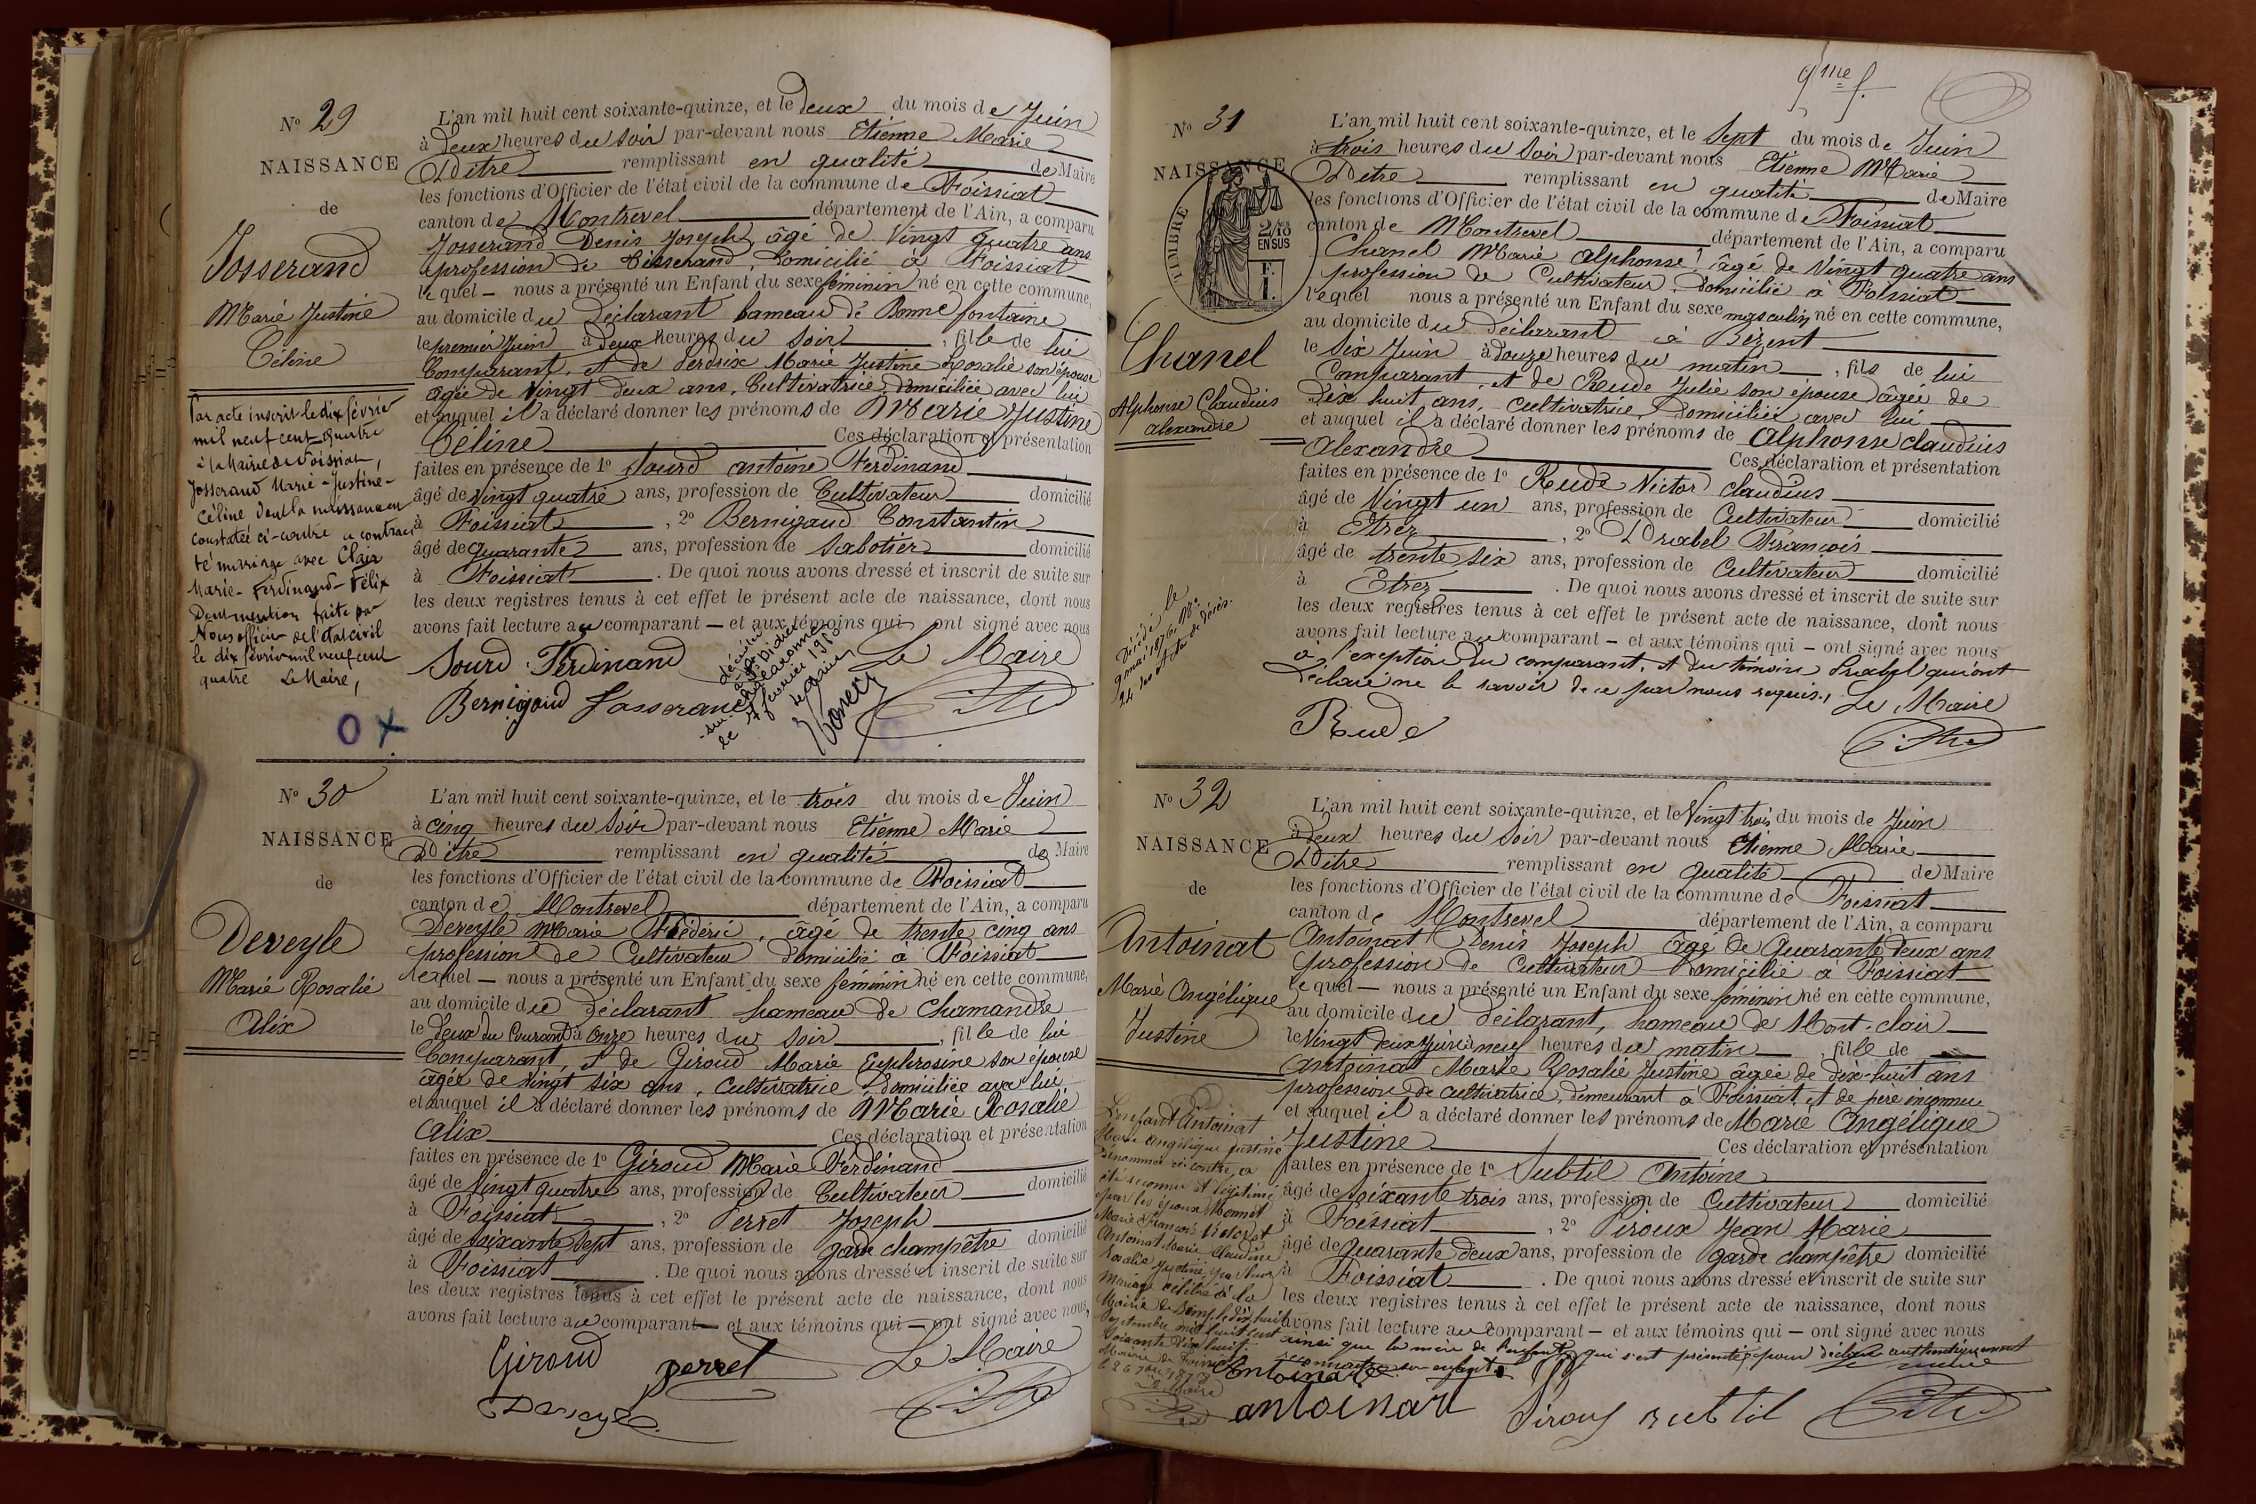 N° 29
NAISSANCE
de
Josserand
Marie Justine
Céline
Par acte inscrit le dix février
mil neuf cent quatre
à la Mairie de Foissiat,
Josserand Marie-Justine-
Céline dont la naissance est
constatée ci-contre a contrac
té mariage avec Claix
Marie-Ferdinand-Félix
Dont mention faite par
Nous officier de l'état civil
le dix février mil neuf cent
quatre Le Maire,
O X
L'an mil huit cent soixante-quinze, et le deux du mois de Juin
à deux heures du soir par-devant nous Etienne Marie
Pitre remplissant en qualité de Maire
les fonctions d'Officier de l'état civil de la commune de Foissiat
canton de Montrevel département de l'Ain, a comparu
Josserand Denis Joseph, âgé de vingt quatre ans
profession de tisserand, domicilié à Foissiat
lequel — nous a présenté un Enfant du sexe féminin né en cette commune,
au domicile du déclarant hameau de Bonne fontaine
le premier Juin à deux heures du soir, fille de lui
Comparant, et de Perdrix Marie Justine Rosalie son épouse
âgée de vingt deux ans, Cultivatrice, domiciliée avec lui
et auquel il a déclaré donner les prénoms de Marie Justine
Céline Ces déclaration et présentation
faites en présence de 1° Sourd antoine Ferdinand
âgé de vingt quatre ans, profession de Cultivateur domicilié
à Foissiat, 2° Bernigaud Constantin
âgé de quarante ans, profession de Sabotier domicilié
à Foissiat. De quoi nous avons dressé et inscrit de suite sur
les deux registres tenus à cet effet le présent acte de naissance, dont nous
avons fait lecture au comparant — et aux témoins qui ont signé avec nous
Sourd Ferdinand Le Maire
Bernigaud Josserand
décédée
à St Didier
sur Chalaronne
le 7 février 19
le Maire
N° 30
NAISSANCE
de
Deveyle
Marie Rosalie
Alix
L'an mil huit cent soixante-quinze, et le trois du mois de Juin
à cinq heures du soir par-devant nous Etienne Marie
Pitre remplissant en qualité de Maire
les fonctions d'Officier de l'état civil de la commune de Foissiat
canton de Montrevel département de l'Ain, a comparu
Deveyle Marie Frédéric, âgé de trente cinq ans
profession de Cultivateur domicilié à Foissiat
lequel — nous a présenté un Enfant du sexe féminin né en cette commune,
au domicile du déclarant hameau de Chamandre
le deux du Courant à onze heures du soir, fille de lui
Comparant, et de Giroud Marie Euphrosine son épouse
âgée de vingt six ans, cultivatrice, domiciliée avec lui
et auquel il a déclaré donner les prénoms de Marie Rosalie
Alix Ces déclaration et présentation
faites en présence de 1° Giroud Marie Ferdinand
âgé de vingt quatre ans, profession de Cultivateur domicilié
à Foissiat, 2° Perret Joseph
âgé de soixante sept ans, profession de garde champêtre domicilié
à Foissiat. De quoi nous avons dressé et inscrit de suite sur
les deux registres tenus à cet effet le présent acte de naissance, dont nous
avons fait lecture au comparant — et aux témoins qui — ont signé avec nous,
Giroud perret Le Maire
Deveyle
9me f.
N° 31
NAISSANCE
TIMBRE
2/10
EN SUS
F.
I.
Chanel
Alphonse Claudius
alexandre
Décédé le
9 mai 1876 N°
24 des actes de décès.
L'an mil huit cent soixante-quinze, et le Sept du mois de Juin
à trois heures du soir par-devant nous Etienne Marie
Pitre remplissant en qualité de Maire
les fonctions d'Officier de l'état civil de la commune de Foissiat
canton de Montrevel département de l'Ain, a comparu
Chanel Marie alphonse, âgé de vingt quatre ans
profession de Cultivateur, domicilié à Foissiat
lequel nous a présenté un Enfant du sexe masculin né en cette commune,
au domicile du déclarant à Bézent
le Six Juin à douze heures du matin, fils de lui
Comparant, et de Rude Julie son épouse âgée de
Dix huit ans, cultivatrice, domiciliée avec lui
et auquel il a déclaré donner les prénoms de alphonse claudius
alexandre Ces déclaration et présentation
faites en présence de 1° Rude Victor claudius
âgé de vingt un ans, profession de Cultivateur domicilié
à Etrez, 2° Drabel François
âgé de trente six ans, profession de Cultivateur domicilié
à Etrez. De quoi nous avons dressé et inscrit de suite sur
les deux registres tenus à cet effet le présent acte de naissance, dont nous
avons fait lecture au comparant — et aux témoins qui — ont signé avec nous
à l'exception du comparant, et du témoin Drabel qui ont
déclaré ne le savoir de ce par nous requis, Le Maire
Rude
N° 32
NAISSANCE
de
Antoinat
Marie Angélique
Justine
L'enfant Antoinat
Marie angélique Justine
dénommée ci contre, a
été reconnue et légitimée
par les époux Monnet
Marie François Victor et
Antoinat Marie Claudine
Rosalie Justine par leur
Mariage célébré à la
Mairie de le dix huit
septembre mil huit cent
Soixante dix huit.
Mairie de Foissiat
le 26 7bre 1878
Le Maire
L'an mil huit cent soixante-quinze, et le Vingt trois du mois de Juin
à deux heures du soir par-devant nous Etienne Marie
Pitre remplissant en qualité de Maire
les fonctions d'Officier de l'état civil de la commune de Foissiat
canton de Montrevel département de l'Ain, a comparu
Antoinat Denis Joseph âgé de Quarante deux ans
profession de Cultivateur domicilié à Foissiat
lequel — nous a présenté un Enfant du sexe féminin né en cette commune,
au domicile du déclarant, hameau de Mont-clair
le Vingt deux Juin à neuf heures du matin, fille de
Antoinat Marie Rosalie Justine âgée de dix-huit ans
profession de cultivatrice, demeurant à Foissiat, et de père inconnu
et auquel il a déclaré donner les prénoms de Marie Angélique
Justine Ces déclaration et présentation
faites en présence de 1° Subtil Antoine
âgé de soixante trois ans, profession de Cultivateur domicilié
à Foissiat, 2° Piroux Jean Marie
âgé de quarante deux ans, profession de garde champêtre domicilié
à Foissiat. De quoi nous avons dressé et inscrit de suite sur
les deux registres tenus à cet effet le présent acte de naissance, dont nous
avons fait lecture au comparant — et aux témoins qui — ont signé avec nous
ainsi que la mère de l'enfant qui s'est présentée pour déclarer authentiquement
reconnaître son enfant. Le maire
Antoinat
antoinat Piroux subtil